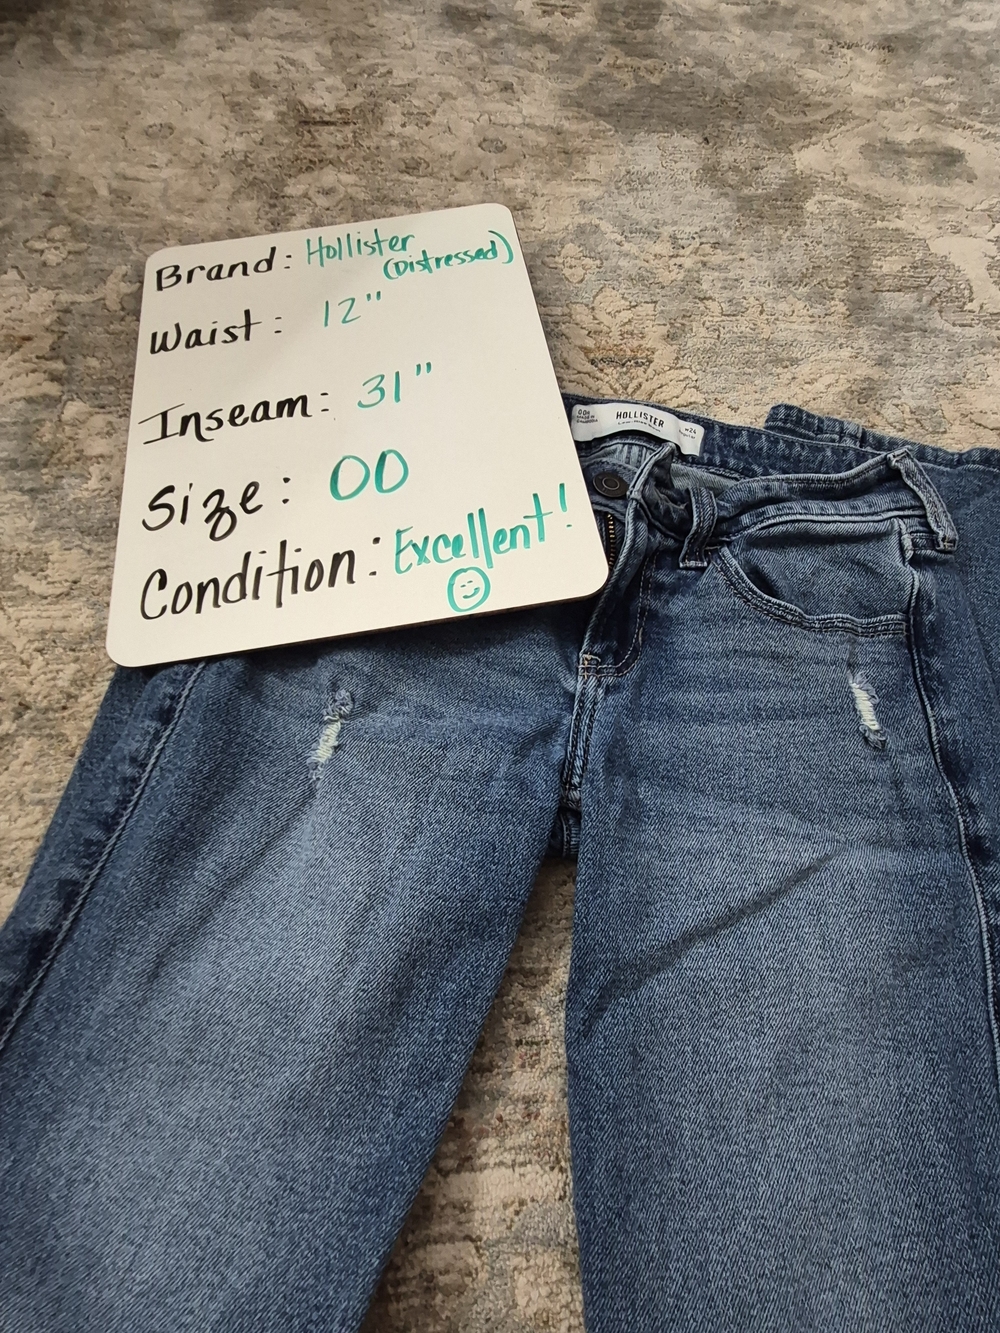 Brand: Hollister
(Distressed)
Waist: 12"
Inseam: 31"
Size: 00
Condition: Excellent!
HOLLISTER
W24